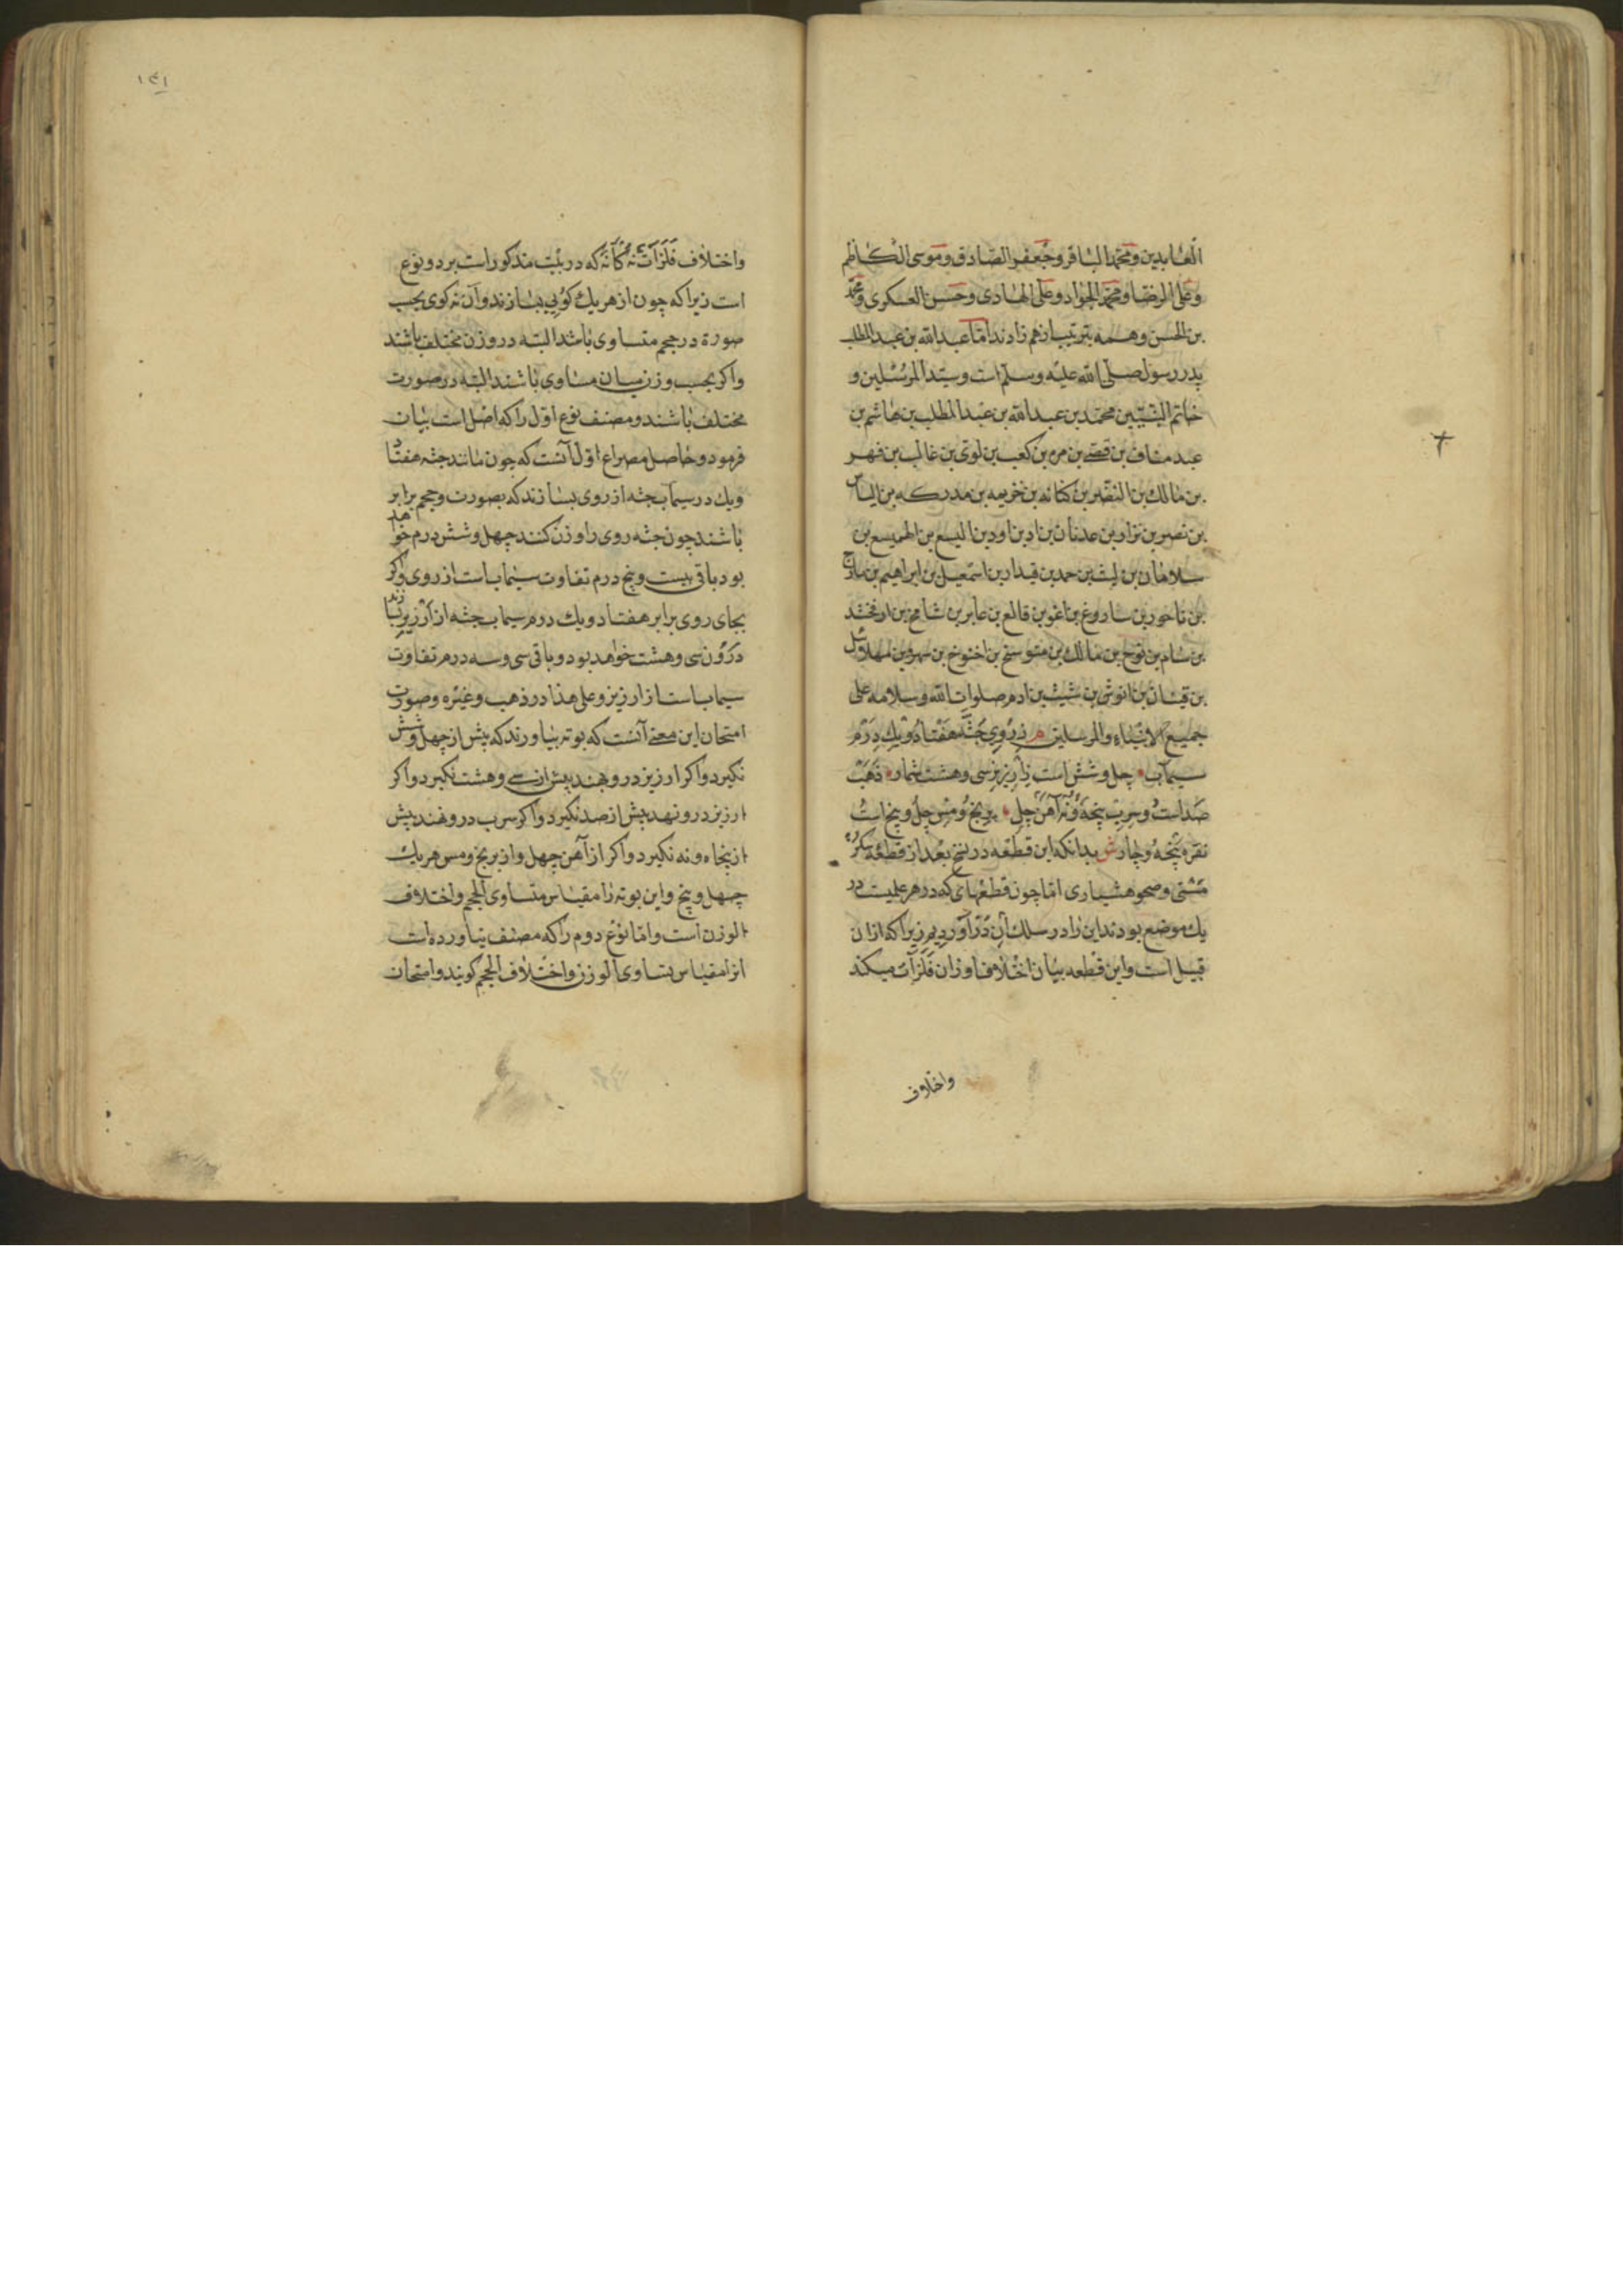 العابدين و محمد الباقر و جعفر الصادق و موسى الكاظم
و على الرضا و محمد الجواد و على الهادى و حسن العسكرى و محمد
بن الحسن و همه بترتيب از هم زادند اما عبدالله بن عبدالمطلب
پدر رسول صلى الله عليه و سلم است و سيد المرسلين و
خاتم النبيين محمد بن عبدالله بن عبدالمطلب بن هاشم بن
عبد مناف بن قصى بن مره بن كعب بن لوى بن غالب بن فهر
بن مالك بن النضر بن كنانه بن خزيمه بن مدركه بن الياس
بن نصر بن نزار بن عدنان بن اد بن اود بن اليسع بن الهميسع بن
سلامان بن ليث بن حمد بن قيدار بن اسمعيل بن ابراهيم بن تارخ
بن ناحور بن ساروغ بن اغو بن فالع بن عابر بن شامخ بن ارفخشد
بن سام بن نوح بن مالك بن متوسخ بن اخنوخ بن بن مهلائل
بن قينان بن انوش بن شيث بن ادم صلوات الله و سلامه على
جميع الانبياء و المرسلين م ز روى جثه هفتاد و يك درم
سيماب چل و شش است ز ارزيز سى و هشت شمار ذهب
صد است و سرب پنجه و نه آهن چل برنج و مس چل و پنج است
نقره پنجه و چار ش بدانكه اين قطعه در نسخ بعد از قطعه سكر
مستى و صحو هشيارى اما چون قطعهاى كه در هر علميست در
يك موضع بودند اين را در سلك آن درآورديم زيرا كه ازان
قبيل است و اين قطعه بيان اختلاف اوزان فلزات ميكند
واختلاف
١٣١
واختلاف فلزات نه گانه كه در بيت مذكور است بر دو نوع
است زيرا كه چون از هر يك كويى بسازند و آن نه كوى بحسب
صورة در حجم متساوى باشند البته در وزن مختلف باشند
و اكر بحسب وزن ميان مساوى باشند البته در صورت
مختلف باشند و مصنف نوع اول را كه اصل است بيان
فرمود و حاصل مصراع اول آنست كه چون مانند جثه هفتاد
و يك درم سيماب جثه از روى بسازند كه بصورت و حجم برابر
باشند چون جثه روى را وزن كنند چهل و شش درم خواهد
بود باقى بيست و پنج درم تفاوت سيماب است از روى و اكر
بجاى روى برابر هفتاد و يك درم سيماب جثه از ارزيز بسازند
در وزن سى و هشت خواهد بود و باقى سى و سه درم تفاوت
سيماب است از ارزيز و على هذا در ذهب و غيره و صورت
امتحان اين معنى آنست كه بوته بياورند كه بيش از چهل و شش
نكيرد و اكر ارزيز درو نهند بيش از سى و هشت نكيرد و اكر
ارزيز درو نهد بيش از صد نكيرد و اكر سرب درو نهند بيش
از پنجاه و نه نكيرد و اكر از آهن چهل و از برنج و مس هر يك
چهل و پنج و اين بوته را مقياس متساوى الحجم و اختلاف
الوزن است و اما نوع دوم را كه مصنف نياورده است
انرا مقياس بتساوى الوزن و اختلاف الحجم كويند و امتحان